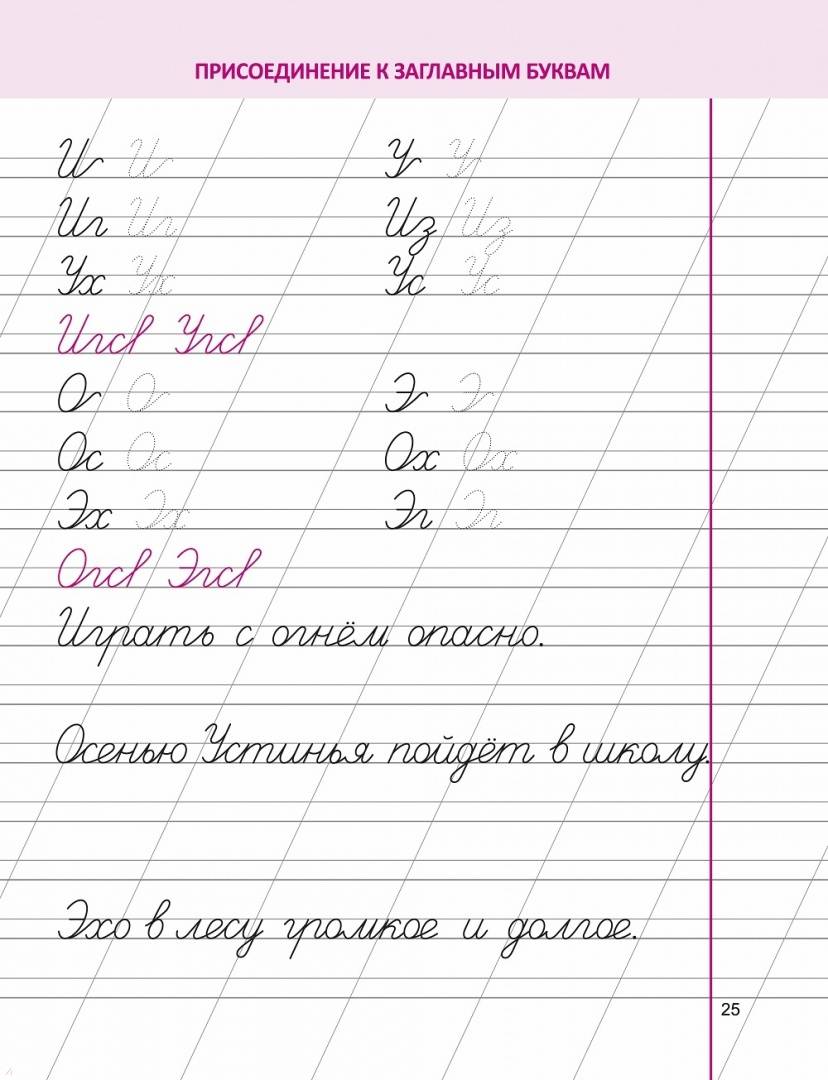 ПРИСОЕДИНЕНИЕ К ЗАГЛАВНЫМ БУКВАМ
И И У У
Иг Иг Из Из
Ух Ух Ус Ус
О О Э Э
Ос Ос Ох Ох
Эх Эх Эг Эг
Играть с огнём опасно.
Осенью Устинья пойдёт в школу.
Эхо в лесу громкое и долгое.
25